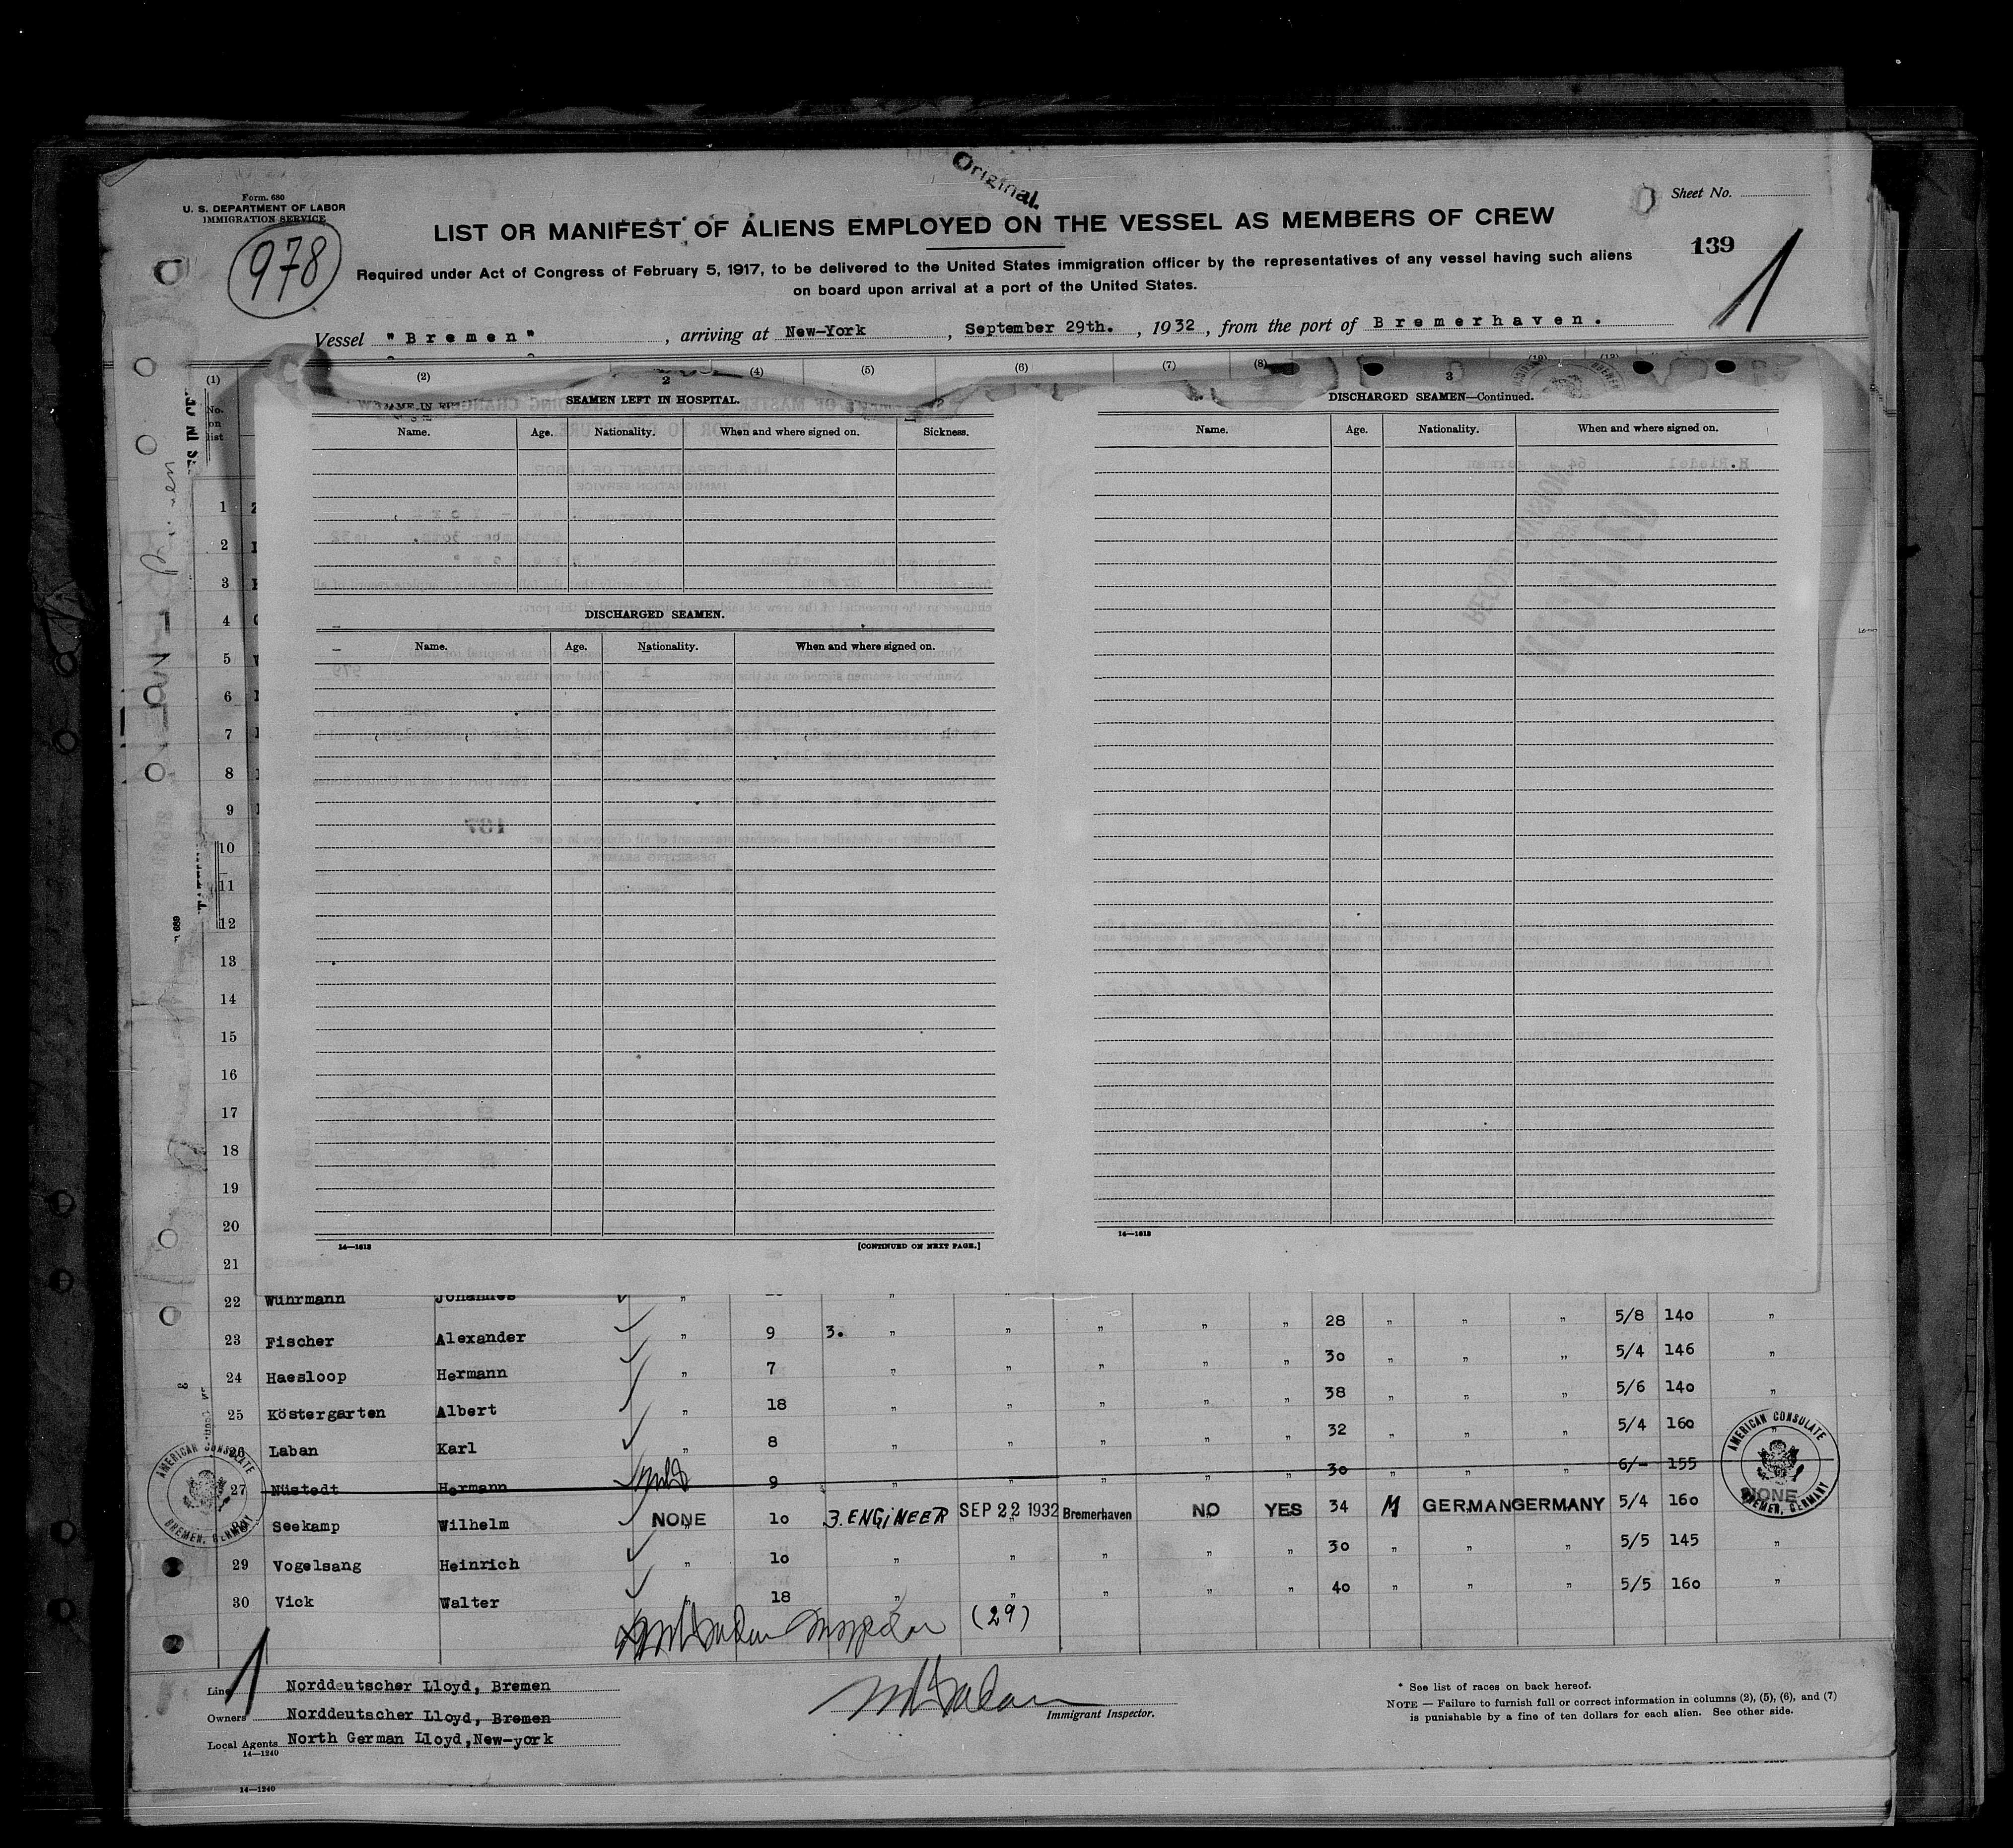 Original.
Form. 680
U. S. DEPARTMENT OF LABOR
IMMIGRATION SERVICE
Sheet No.
LIST OR MANIFEST OF ALIENS EMPLOYED ON THE VESSEL AS MEMBERS OF CREW
978
139
1
Required under Act of Congress of February 5, 1917, to be delivered to the United States immigration officer by the representatives of any vessel having such aliens
on board upon arrival at a port of the United States.
Vessel "Bremen" , arriving at New-York , September 29th. , 1932 , from the port of Bremerhaven.
(1) (2) (4) (5) (6) (7) (8)
No. on list
2
SEAMEN LEFT IN HOSPITAL.
Name. Age. Nationality. When and where signed on. Sickness.
DISCHARGED SEAMEN.
Name. Age. Nationality. When and where signed on.
14—1613 [CONTINUED ON NEXT PAGE.]
3
DISCHARGED SEAMEN—Continued.
Name. Age. Nationality. When and where signed on.
14—1613
1
2
3
4
5
6
7
8
9
10
11
12
13
14
15
16
17
18
19
20
21
22 Wührmann Johannes " "
23 Fischer Alexander " 9 3. " " " " " 28 " " " 5/8 140 "
24 Haesloop Hermann " 7 " " " " " 30 " " " 5/4 146 "
25 Köstergarten Albert " 18 " " " " " 38 " " " 5/6 140 "
26 Laban Karl " 8 " " " " " 32 " " " 5/4 160 "
27 Nüstedt Hermann 9 " " " " " 30 " " " 6/- 155
Seekamp Wilhelm NONE 10 3. ENGINEER SEP 22 1932 Bremerhaven NO YES 34 M GERMAN GERMANY 5/4 160 NONE
29 Vogelsang Heinrich " 10 " " " " " 30 " " " 5/5 145 "
30 Vick Walter " 18 " " " " " 40 " " " 5/5 160 "
AMERICAN CONSULATE
BREMEN, GERMANY
AMERICAN CONSULATE
BREMEN, GERMANY
Inspector (29)
1
Line Norddeutscher Lloyd, Bremen
Owners Norddeutscher Lloyd, Bremen
Local Agents North German Lloyd, New-york
14—1240
Immigrant Inspector.
* See list of races on back hereof.
NOTE — Failure to furnish full or correct information in columns (2), (5), (6), and (7)
is punishable by a fine of ten dollars for each alien. See other side.
14—1240